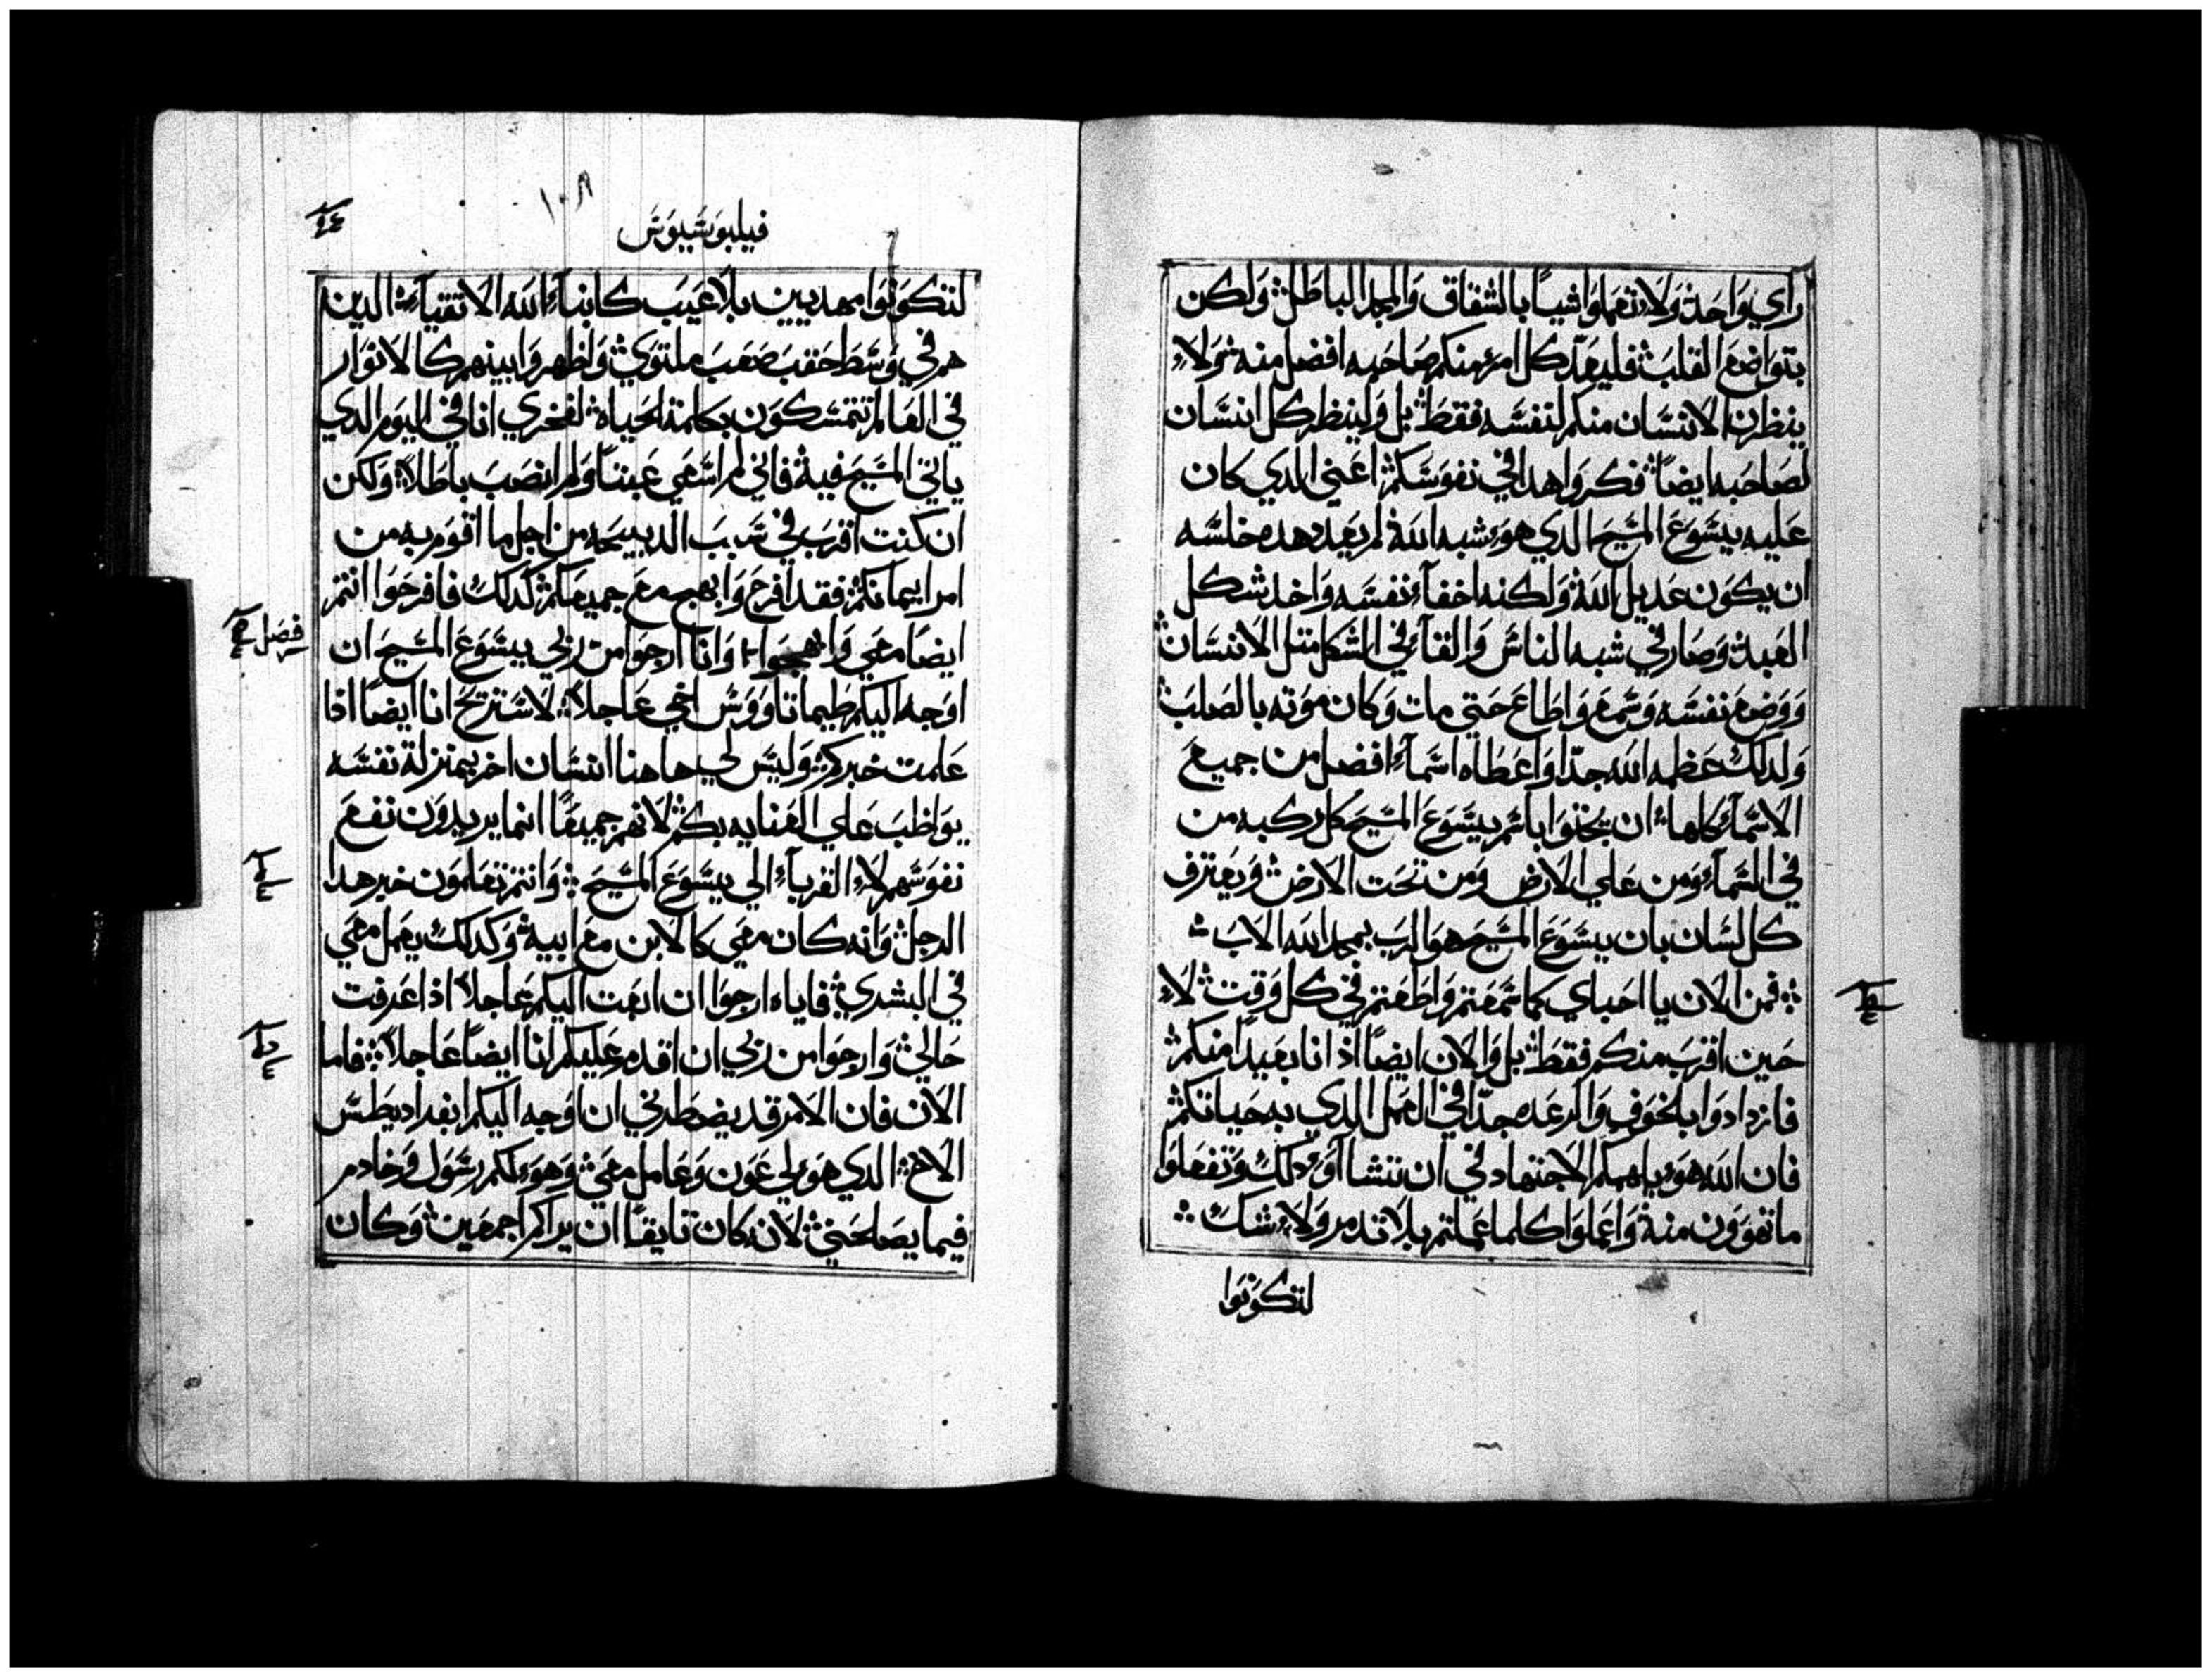 راي واحد ولا تعملوا شيباً بالشقاق والمجد الباطل ولكن
بتواضع القلب فليعدّ كل امرء منكم صاحبه افضل منه ولاء
ينظرن الانسان منكم لنفسه فقط بل ولينظر كل انسان
لصاحبه ايضاً فكروا هدا في نفوسكم اعني الدي كان
عليه يسوع المسيح الدي هوء شبه الله لم يعد هده خلسه
ان يكون عديل الله ولكنه اخفاء نفسه واخد شكل
العبد وصار في شبه الناس والقاء في الشكل متل الانسان
ووضع نفسه وسمع واطاع حتي مات وكان موته بالصلب
ولدلك عظمه الله جدّا واعطاه اسماء افضل من جميع
الاسماء كلها ان يحنوا باسم يسوع المسيح كل ركبه من
في السماء ومن علي الارض ومن تحت الارض ويعترف
كل لسان بان يسوع المسيح هو الرب بمجد الله الاب
فمن الان يا احباي كما سمعتم واطعتم في كل وقت لاء
حين اقترب منكم فقط بل والان ايضاً اذ انا بعيداً منكم
فازدادوا بالخوف والرعده جدّا في العمل الدي به حياتكم
فان الله هوء ياهمكم الاجتهاد في ان تتشاآوء دلك وتفعلوا
ما تهوون منه واعملوا كلما عملتم بلا تدمر ولاء شك
لتكونوا
١٠٨
فيلبوسيوس
لتكونوا مهديين بلا عيب كابناء الله الاتقياء الدين
هم في وسط حقب صعب ملتوي واظهروا بينهم كالانوار
في العالم تتمسكون بكلمة الحياه لفخري انا في اليوم الدي
ياتي المسيح فيه فاني لم اسعي عبتاً ولم انصب باطلاً ولكن
ان كنت اقرب في سبب الدبيحه من اجل ما اقوم به من
امر ايمانكم فقد افرح وابهج مع جميعكم كدلك فافرحوا انتم
ايضاً معي وابهجوا وانا ارجوا من ربي يسوع المسيح ان
فصل
اوجه اليكم طيماتاووس اخي عاجلاً لاستريح انا ايضاً اذا
علمت خبركم وليس لي هاهنا انسان اخر بمنزلة نفسه
يواظب علي العنايه بكم لانهم جميعاً انما يريدون نفع
نفوسهم لاء القرباء الي يسوع المسيح وانتم تعلمون خبر هدا
الرجل وانه كان معي كالابن مع ابيه وكدلك يعمل معي
في البشري فاياه ارجوا ان ابعت اليكم عاجلاً اذا عرفت
حالي وارجوا من ربي ان اقدم عليكم انا ايضاً عاجلاً فاما
الان فان الامر قد يضطرني ان اوجه اليكم ابفراديطس
الاخ الدي هوء لي عون وعامل معي وهوء لكم رسول وخادم
فيما يصلحني لانه كان تايقاً ان يراكم اجمعين وكان